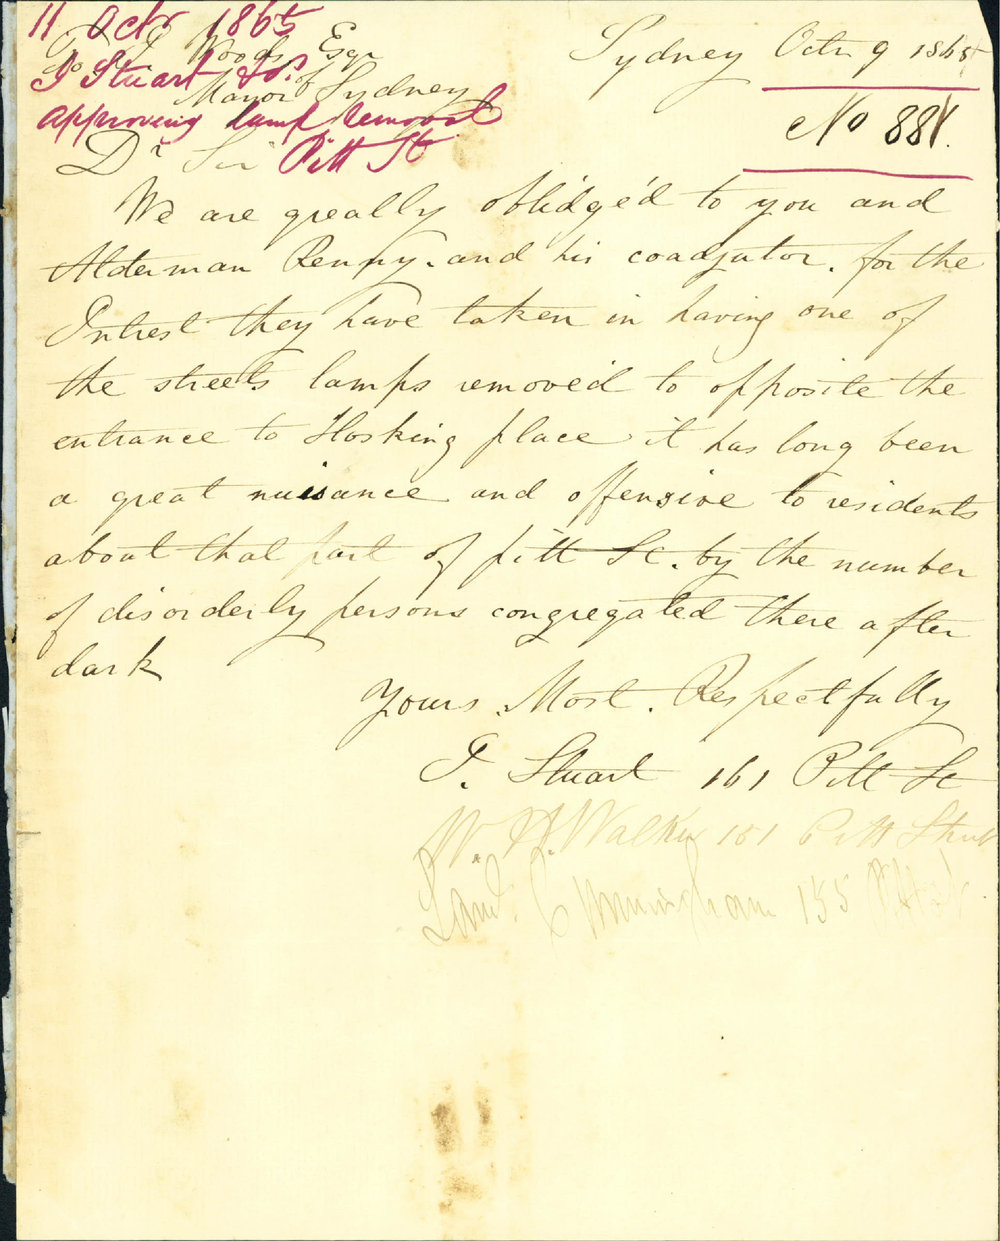 11 Octr 1865
J Stuart &os
approving lamp removal
Pitt St
Sydney Octr 9 1865
No 881.
Woods Esqr
Mayor of Sydney
Dr Sir
We are greatly oblidge'd to you and
Alderman Renny. and his coadjutor. for the
Intrest they have taken in having one of
the streets lamps remove'd to opposite the
entrance to Hosking place it has long been
a great nuisance and offensive to residents
about that part of pitt St. by the number
of disorderly persons congregated there after
dark
Yours. Most. Respectfully
J. Stuart 161 Pitt St
W. H. Walker 161 Pitt Street
Cunningham 155 Pitt St